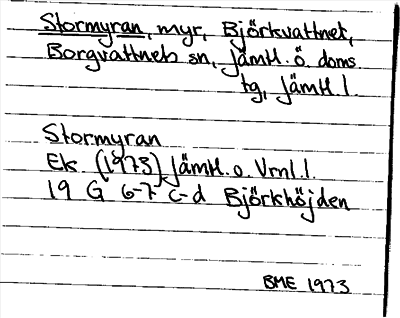 Stormyran, myr, Björkvattnet,
Borgvattnets sn, Jämtl. ö. doms
tg, Jämtl. l.
Stormyran
Ek (1973) Jämtl. o. Vrnl. l.
19 G 6-7 c-d Björkhöjden
BME 1973